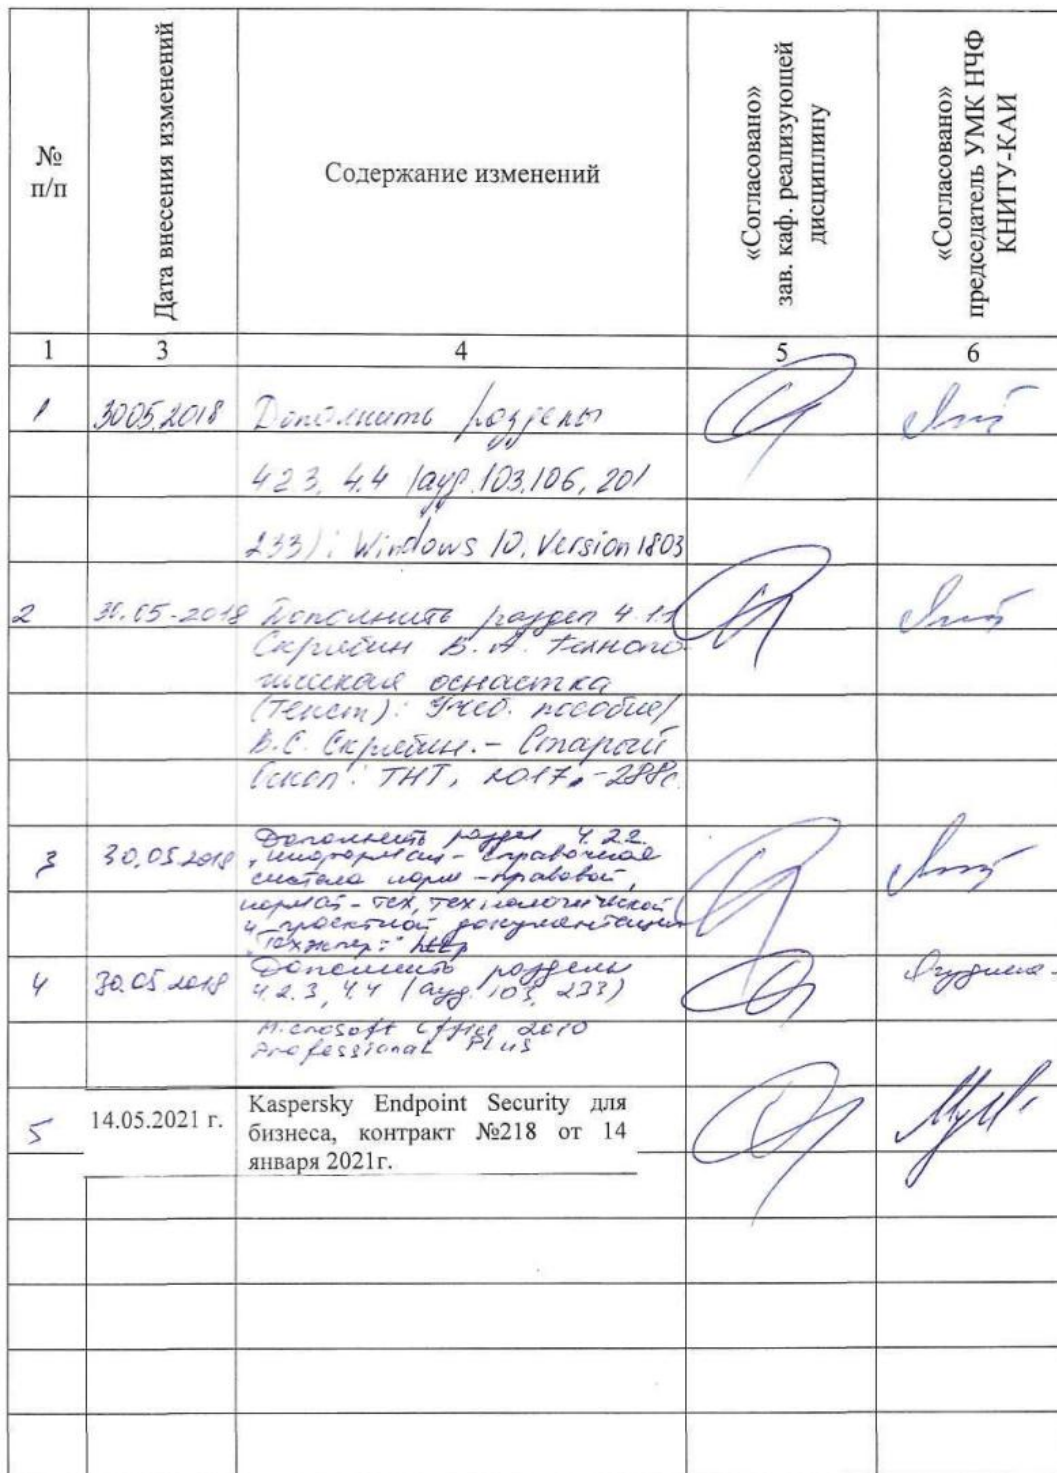 №
п/п
Дата внесения изменений
Содержание изменений
«Согласовано»
зав. каф. реализующей
дисциплину
«Согласовано»
председатель УМК НЧФ
КНИТУ-КАИ
1 3 4 5 6
1 3005.2018 Дополнить разделы
4.2.3, 4.4 (ауд. 103, 106, 201
233): Windows 10, Version 1803
2 30.05-2018 Дополнить раздел 4.1.1
Скрябин В.А. Технологи-
ческая оснастка
(Текст): Учеб. пособие/
В.С. Скрябин. - Старый
Оскол: ТНТ, 2017. - 288с.
3 30.05.2018 Дополнить раздел 4.2.2.
справочная
система норм - правовой,
нормат - тех, технологической
и проектной документации
"Техэксперт" http
4 30.05.2018 Дополнить разделы
4.2.3, 4.4 (ауд. 103, 233)
Microsoft Office 2010
Professional Plus
5 14.05.2021 г. Kaspersky Endpoint Security для
бизнеса, контракт №218 от 14
января 2021г.